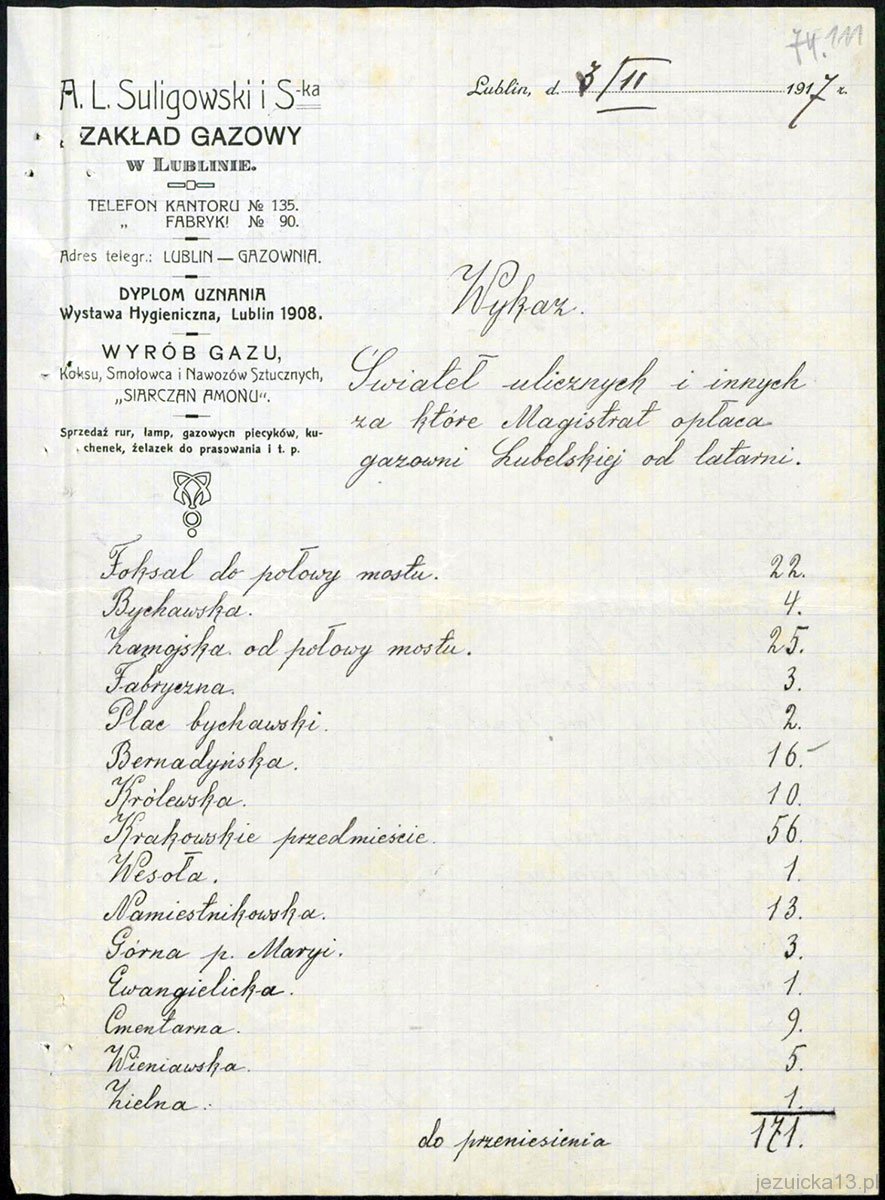 74. 111
A. L. Suligowski i S-ka
ZAKŁAD GAZOWY
W LUBLINIE.
TELEFON KANTORU № 135.
„ FABRYKI № 90.
Adres telegr.: LUBLIN — GAZOWNIA.
DYPLOM UZNANIA
Wystawa Hygieniczna, Lublin 1908.
WYRÓB GAZU,
Koksu, Smołowca i Nawozów Sztucznych,
„SIARCZAN AMONU".
Sprzedaż rur, lamp, gazowych piecyków, ku-
chenek, żelazek do prasowania i t. p.
Lublin, d. 3/II 1917 r.
Wykaz.
Świateł ulicznych i innych
za które Magistrat opłaca
gazowni Lubelskiej od latarni.
Foksal do połowy mostu. 22.
Bychawska. 4.
Zamojska. od połowy mostu. 25.
Fabryczna. 3.
Plac bychawski. 2.
Bernadyńska. 16.
Królewska. 10.
Krakowskie przedmieście. 56.
Wesoła. 1.
Namiestnikowska. 13.
Górna p. Maryi. 3.
Ewangielicka. 1.
Cmentarna. 9.
Wieniawska. 5.
Zielna. 1.
do przeniesienia 171.
jezuicka13.pl